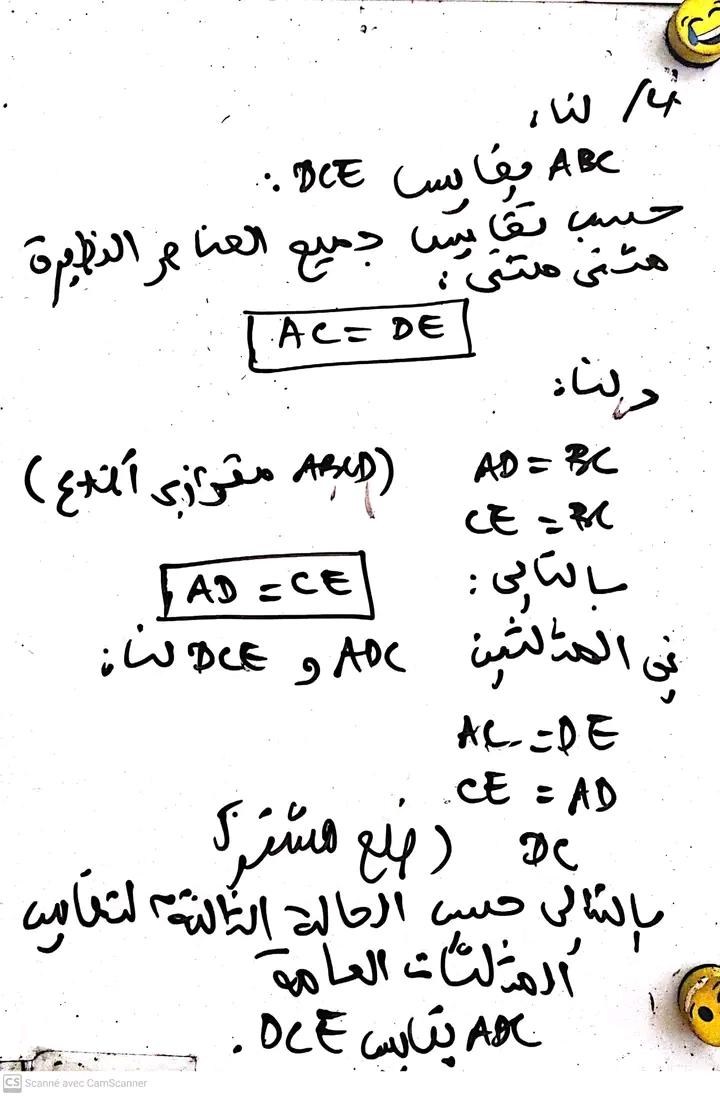 4/ لنا:
ABC يقايس DCE :
حسب تقايس جميع العناصر النظيرة
مثنى مثنى:
AC = DE
ولنا:
AD = BC (ABCD متوازي أضلاع)
CE = BC
بالتالي:
AD = CE
في المثلثين ADC و DCE لنا:
AC = DE
CE = AD
DC (ضلع مشترك
بالتالي حسب الحالة الثالثة لتقايس
المثلثات العامة
ADC يقايس DCE .
CS Scanné avec CamScanner